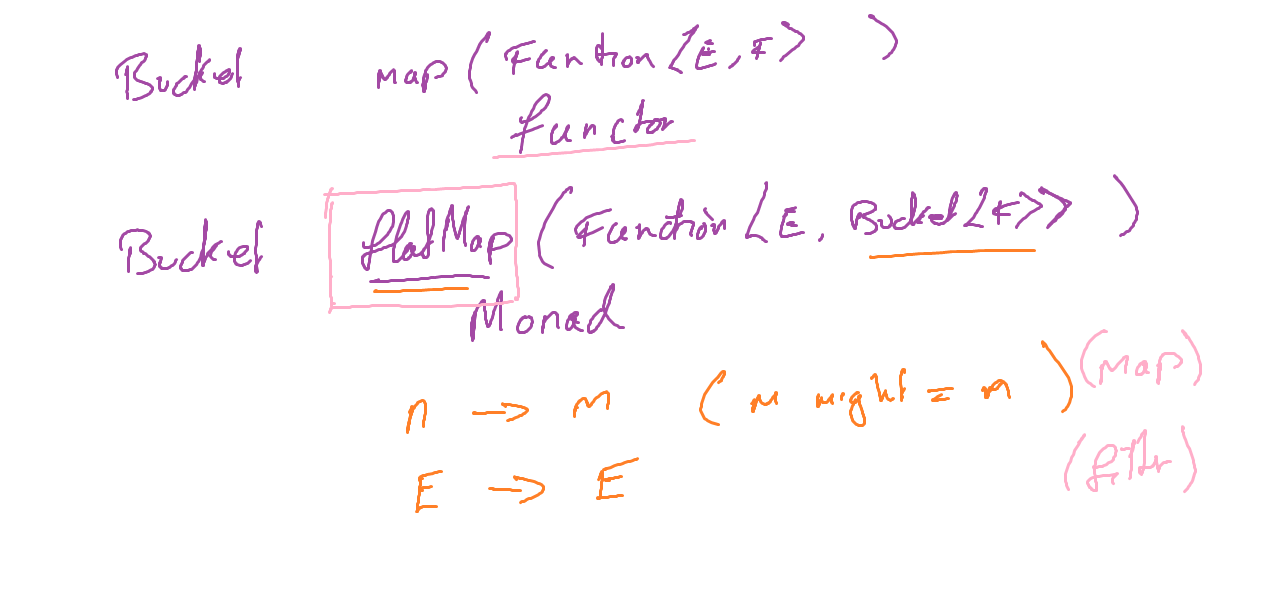 Bucket map (Funtion <E, F> )
functor
Bucket flatMap (Function <E, Bucket<F>> )
Monad
n → m ( m might = n ) (map)
E → E (filter)